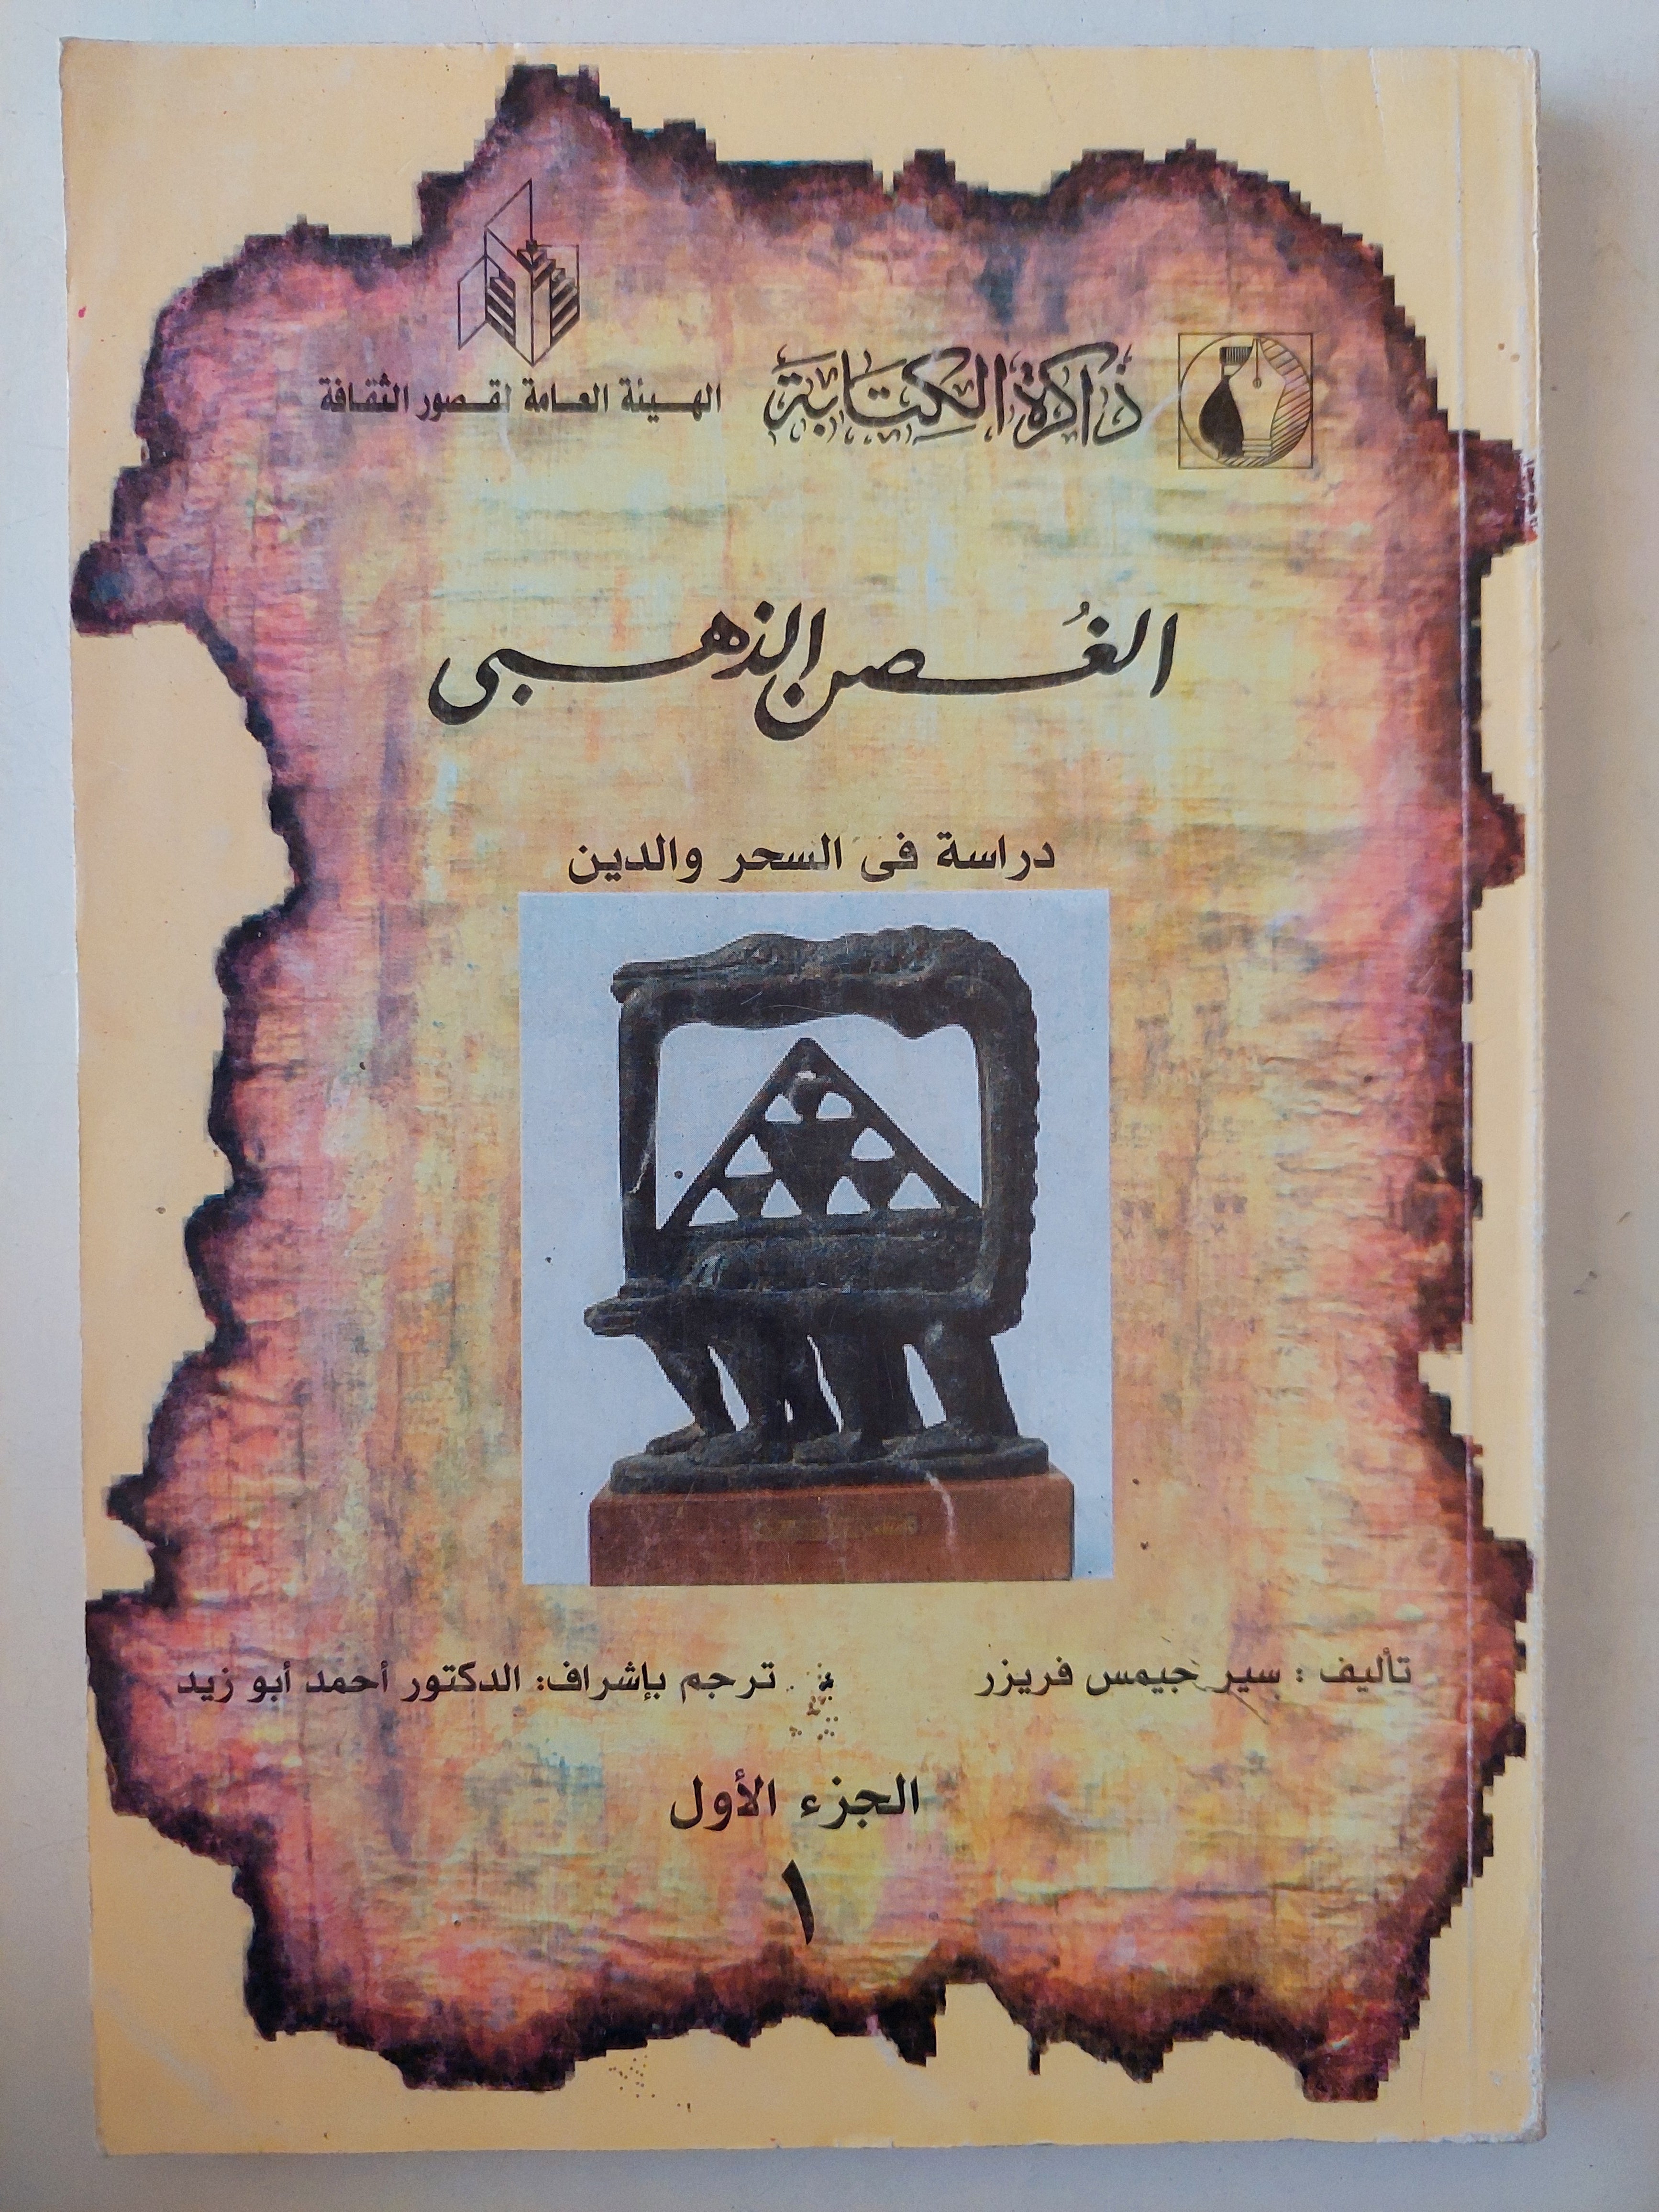 ذاكرة الكتابة
الهيئة العامة لقصور الثقافة
الغُصن الذهبى
دراسة فى السحر والدين
تأليف : سير جيمس فريزر
ترجم بإشراف: الدكتور أحمد أبو زيد
الجزء الأول
١